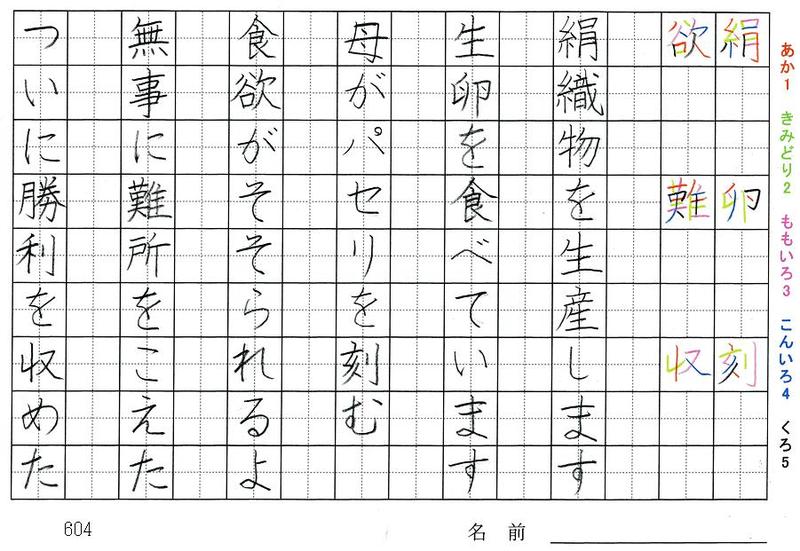 あか1 きみどり2 ももいろ3 こんいろ4 くろ5
絹 卵 刻
欲 難 収
絹織物を生産します
生卵を食べています
母がパセリを刻む
食欲がそそられるよ
無事に難所をこえた
ついに勝利を収めた
604
名前